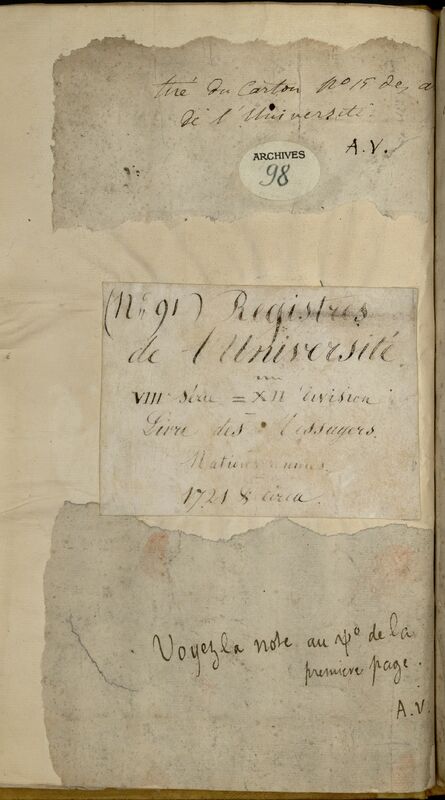 tiré du Carton No 15 des a
de l'Université.
A.V.
ARCHIVES
98
(No 91) Registres
de l'Université
VIIIe Série = XIIe division
Livre des Messagers.
Nations
1721 & circa.
Voyez la note au vo de la
première page.
A.V.